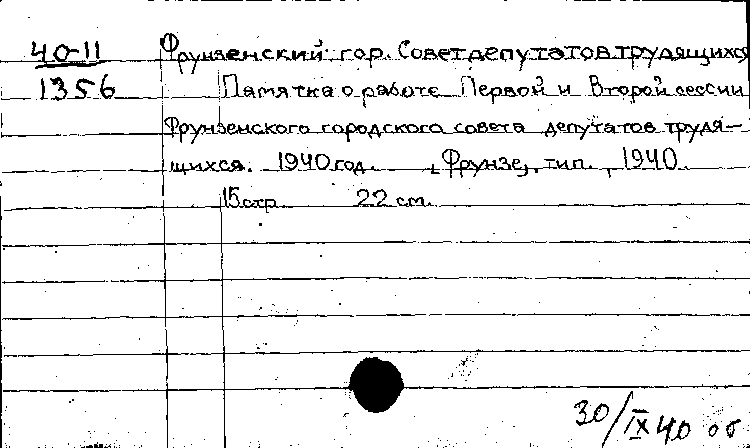 40-11
1356
Фрунзенский гор. Совет депутатов трудящихся
Памятка о работе Первой и Второй сессии
Фрунзенского городского совета депутатов трудя-
щихся. 1940 год. Фрунзе, тип., 1940.
15 стр. 22 см.
30/IX 40 об